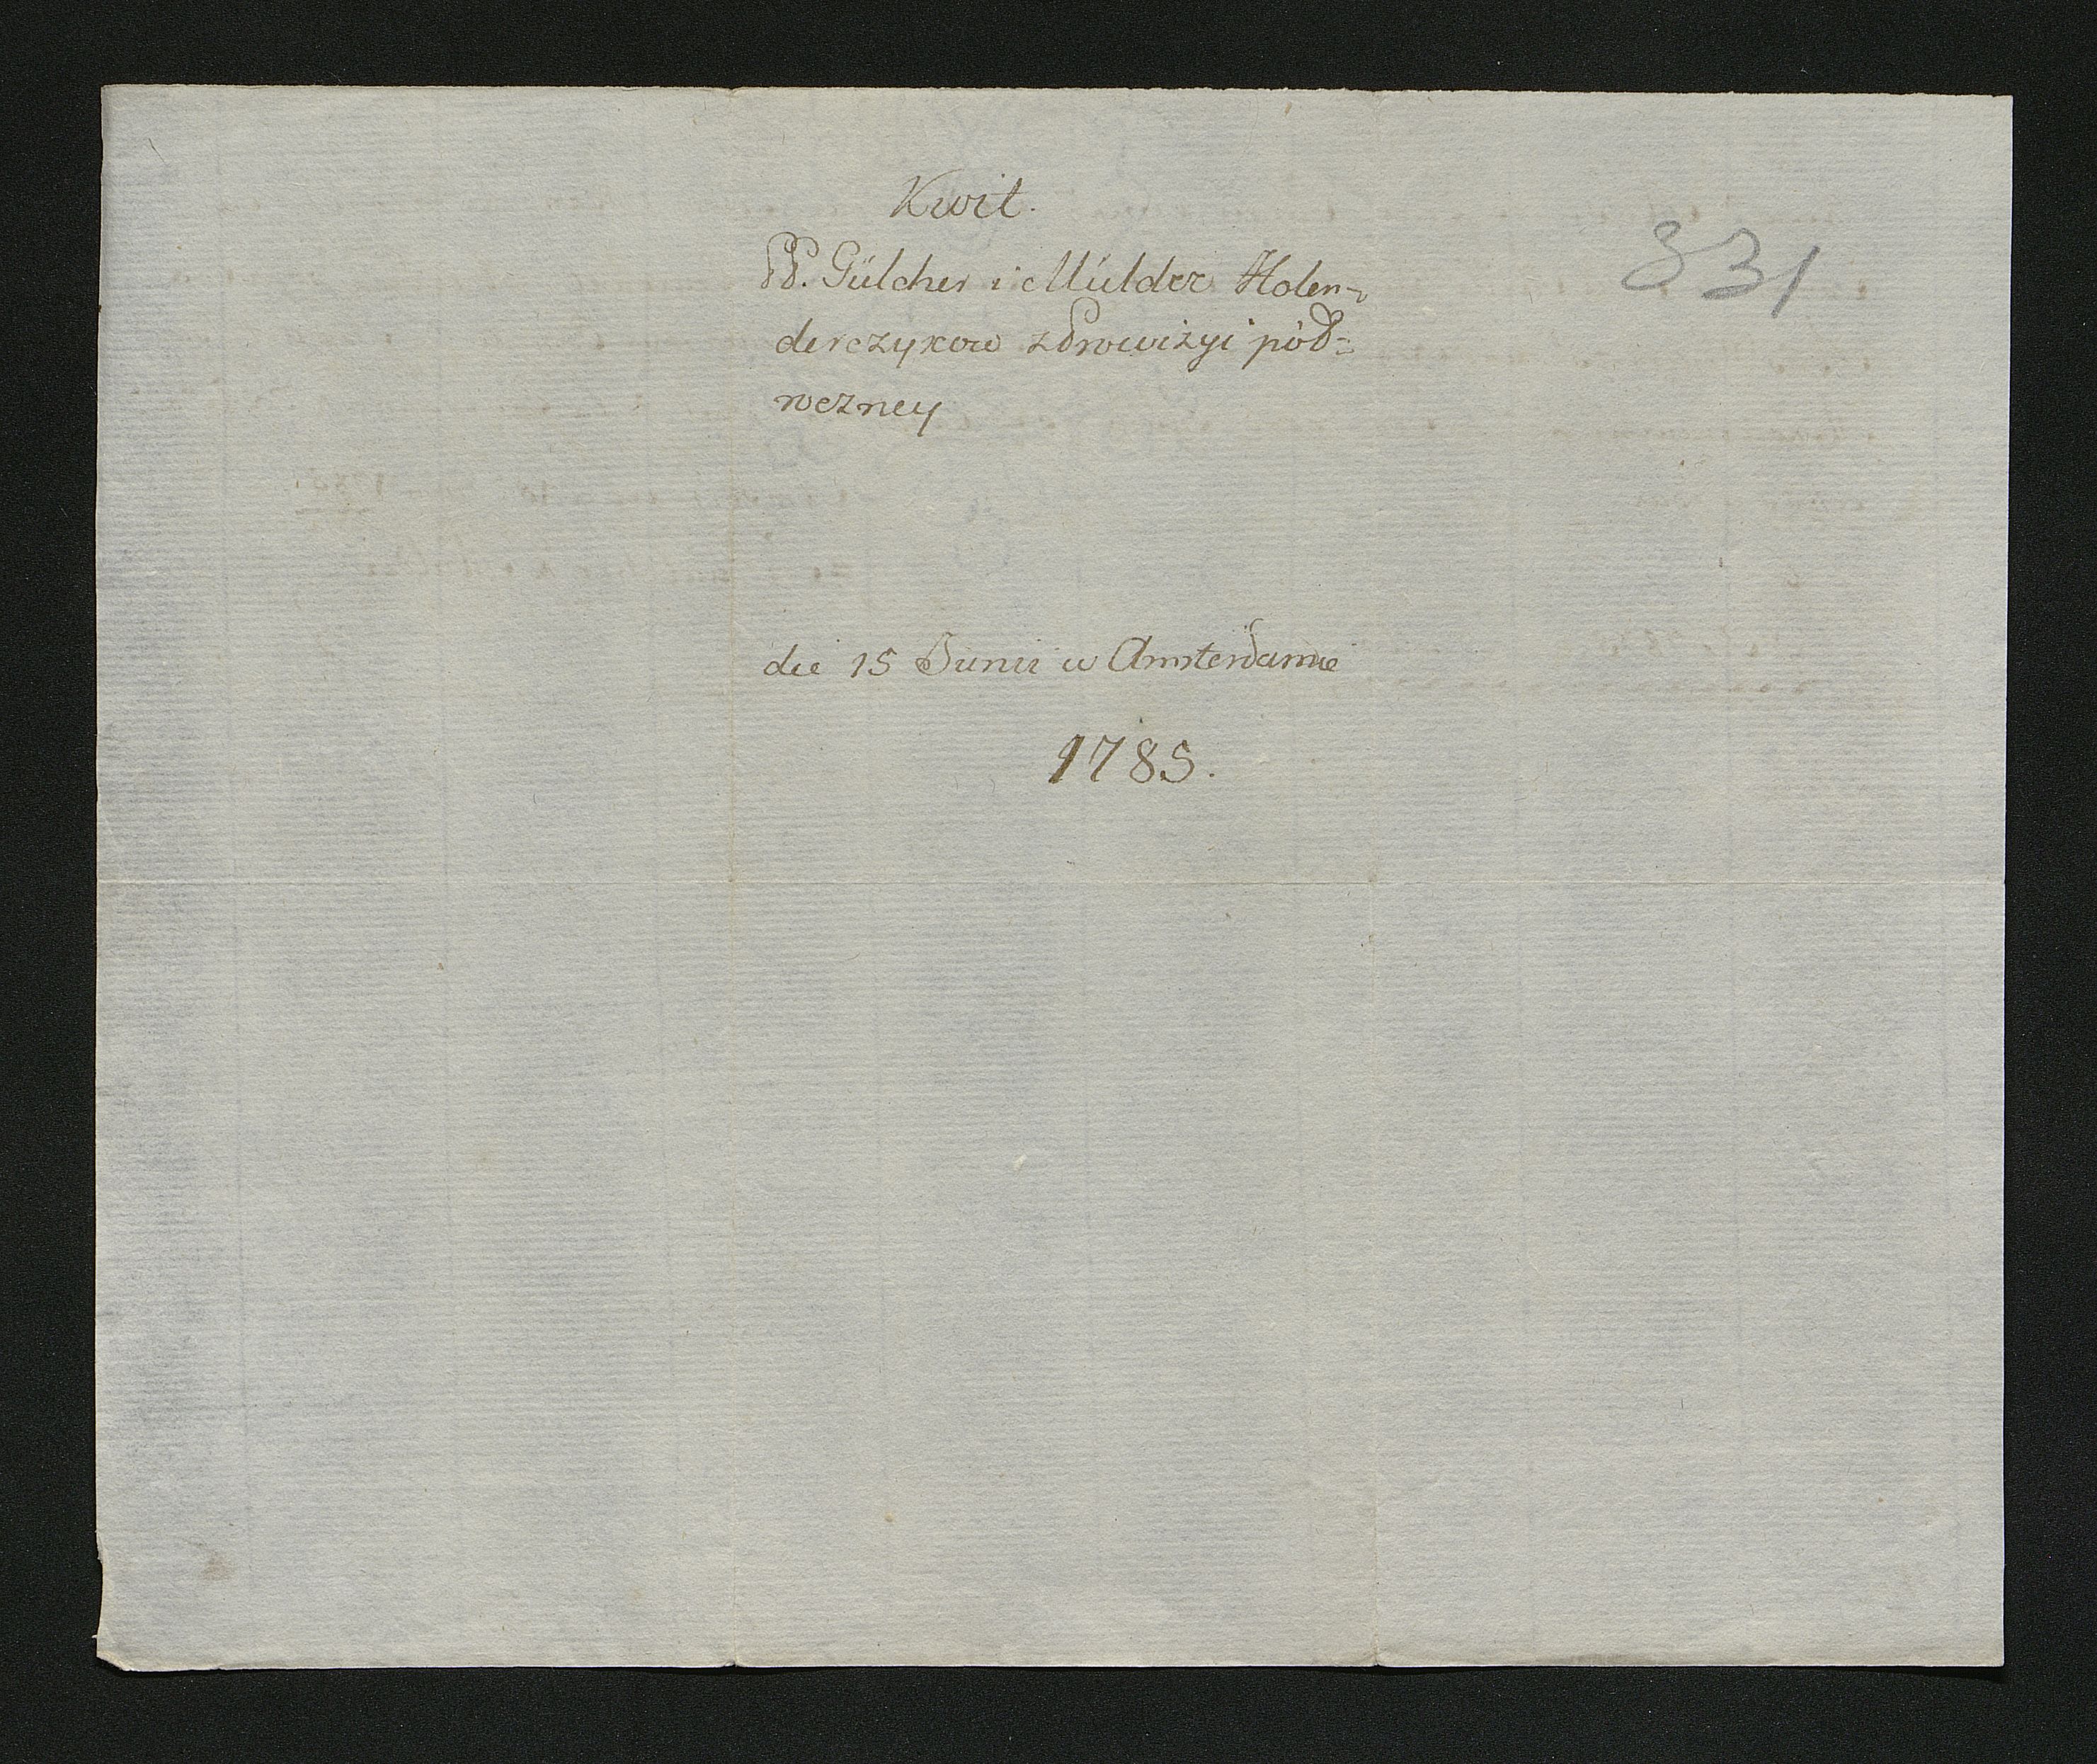 Kwit.
PP. Gülcher i Mülder Holen-
derczykow z Prowizyi pół-
roczney
die 15 Junii w Amsterdamie
1785.
331